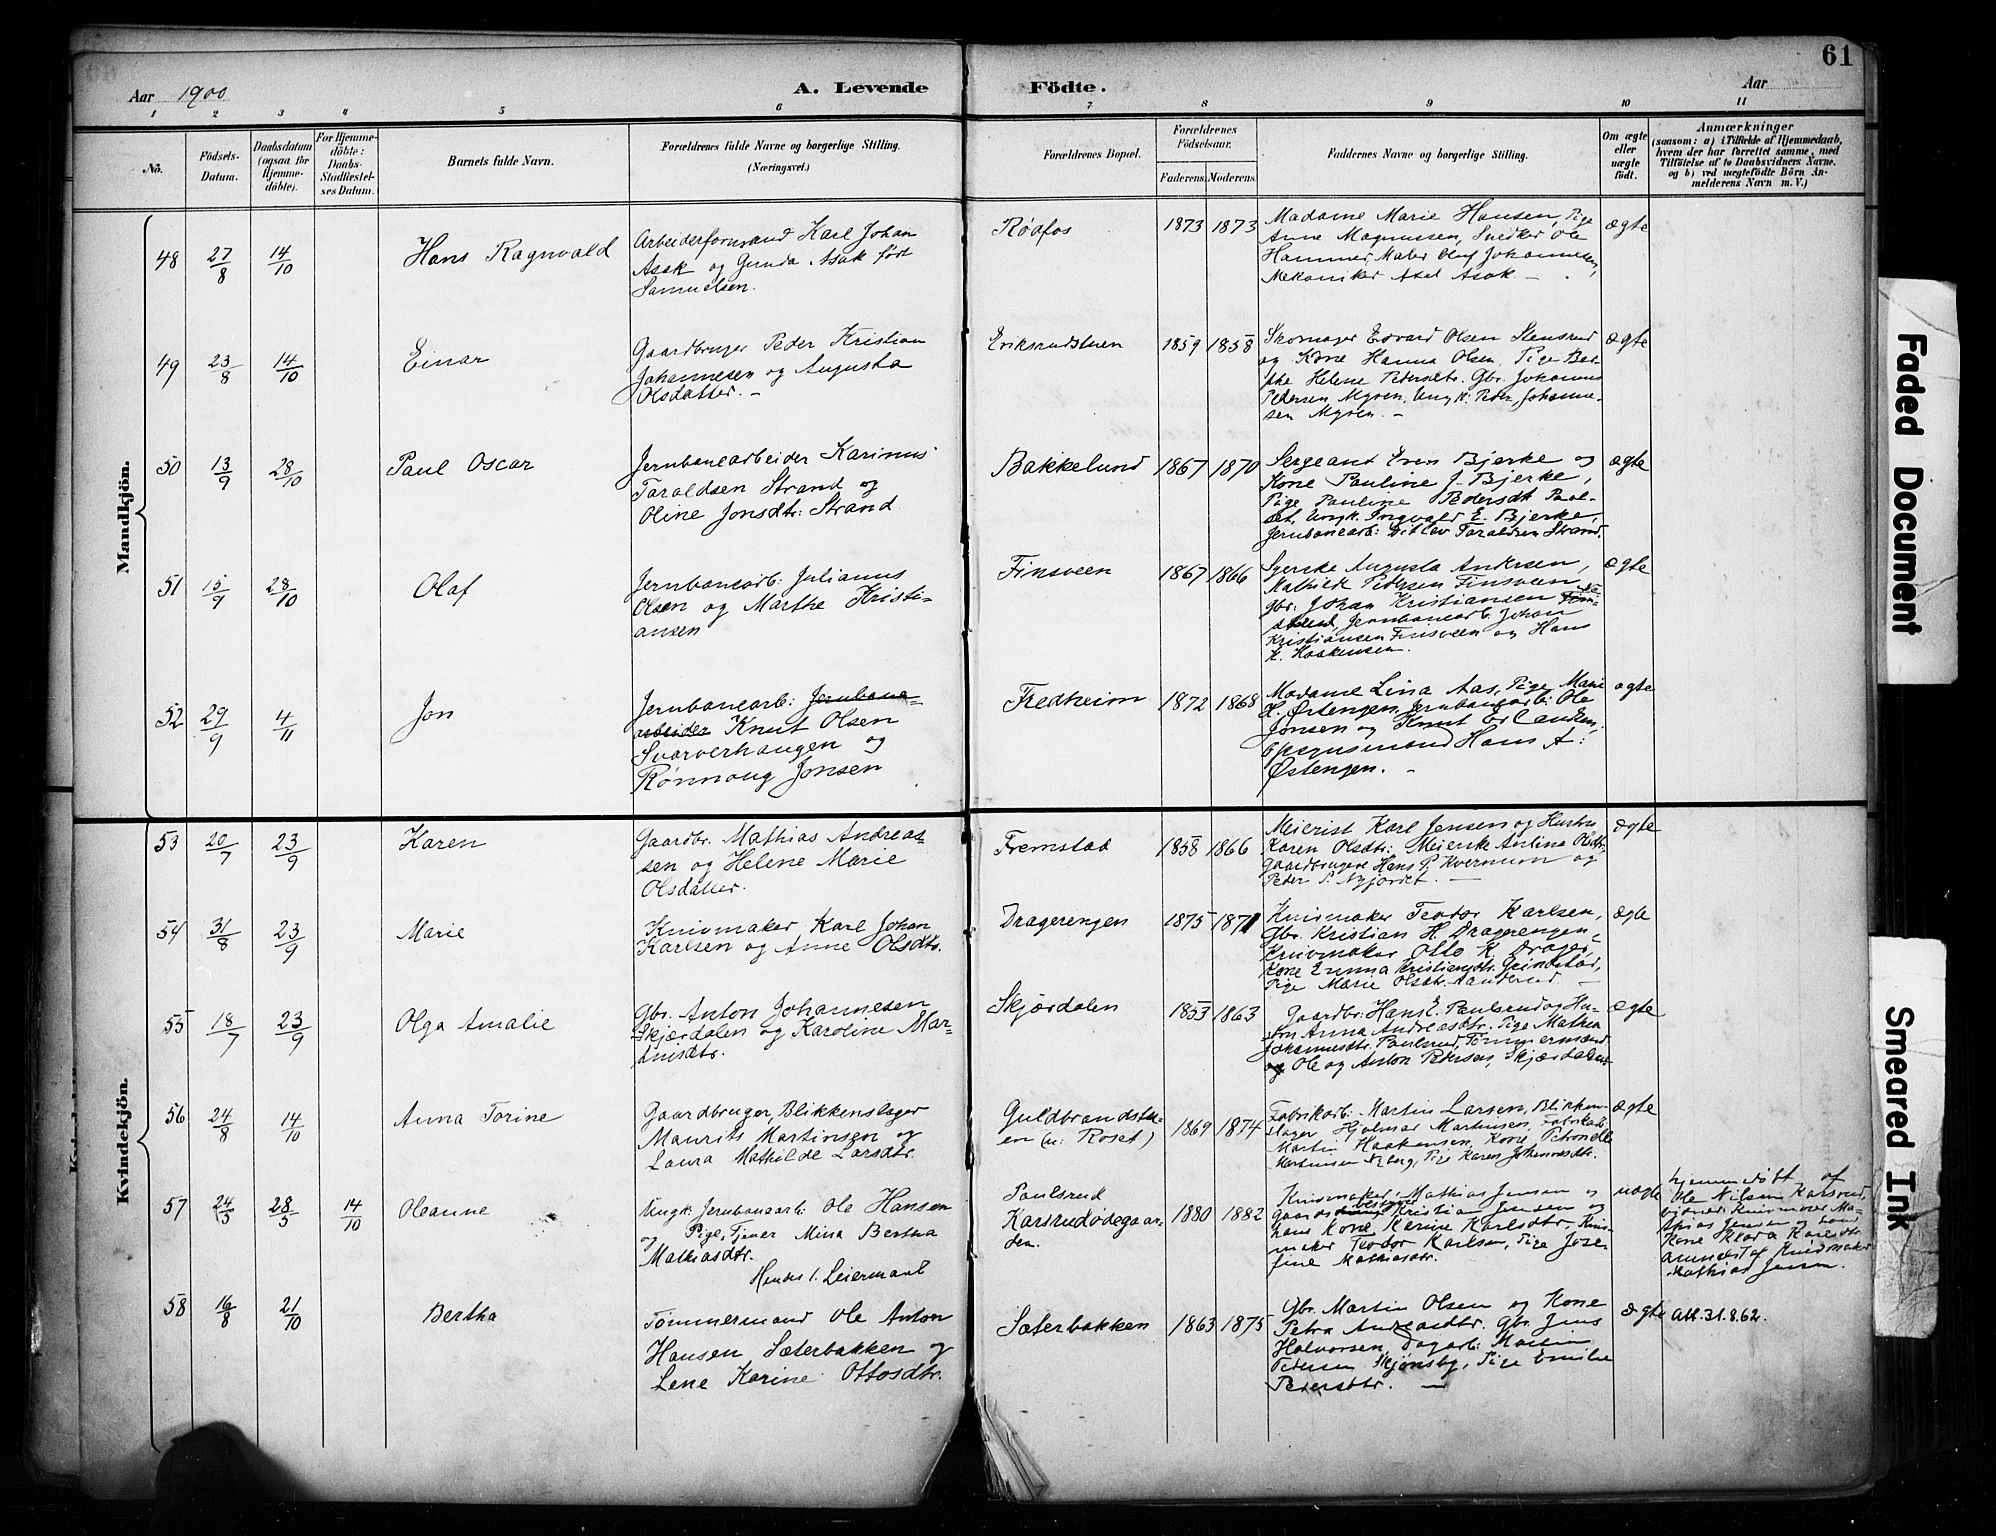 61
Aar 1900
A. Levende Födte.
Aar
1 2 3 4 5 6 7 8 9 10 11
No.
Födsels-
Datum.
Daabsdatum
(ogsaa for
Hjemme-
döbte).
For Hjemme-
döbte:
Daabs-
Stadfæstel-
ses Datum.
Barnets fulde Navn.
Forældrenes fulde Navne og borgerlige Stilling.
(Næringsvei.)
Forældrenes Bopæl.
Forældrenes
Födselsaar.
Faderens. Moderens.
Faddernes Navne og borgerlige Stilling.
Om ægte
eller
uægte
födt.
Anmærkninger
(saasom: a) i Tilfælde af Hjemmedaab,
hvem der har forrettet samme, med
Tilföielse af to Daabsvidners Navne.
og b) ved uægtefödte Börn An-
melderens Navn m. V.)
Mandkjön.
48 27/8 14/10 Hans Ragnvald
Arbeiderformand Karl Johan
Asak og Gunda Asak født
Samuelsen.
Rødfos 1873 1873
Madame Marie Hansen, Pige
Anne Magnussen, Snedker Ole
Hammer, Maler Oluf Johannesen,
Mekaniker Axel Asak –
ægte
49 23/8 14/10 Einar
Gaardbruger Peder Kristian
Johannesen og Augusta
Olsdatter. –
Eriksrudstuen 1859 1858
Skomager Edvard Olsen Stensrud
og Kone Hanna Olsen, Pige Ber-
the Helene Pedersdtr. Gbr. Johannes
Pedersen Myren, Ungk. Peder Johanne-
sen Myren. –
ægte
50 13/9 28/10 Paul Oscar
Jernbanearbeider Karinus
Taraldsen Strand og
Oline Jonsdtr. Strand
Bakkelund 1867 1870
Sergeant Even Bjerke og
Kone Pauline J. Bjerke,
Pige Pauline Pedersdt Paul-
Ungk. Ingvald E. Bjerke,
Jernbanearb: Ditlev Taraldsen Strand.
ægte
51 15/9 28/10 Olaf
Jernbanearb: Julianus
Olsen og Marthe Kristi-
ansen
Finsveen 1867 1866
Syerske Augusta Andersen,
Mathilde Pedersen Finsveen
gbr: Johan Kristiansen
Jernbanearb. Johan
Kristiansen Finsveen og Hans
K. Haakensen.
ægte
52 29/9 4/11 Jon
Jernbanearb: Jernbane-
arbeider Knut Olsen
Svarverhaugen og
Rønnaug Jonsen
Fredheim 1872 1868
Madame Lina Aas, Pige Marie
H. Østengen, Jernbanearb: Ole
Jonsen og Knut
Hans A:
Østengen. –
ægte
Kvindekjön.
53 20/7 23/9 Karen
Gaardbr. Mathias Andreas-
sen og Helene Marie
Olsdatter.
Fremstad 1858 1866
Meierist Karl Jensen og Hustru
Karen Olsdtr: Meierske Antina Olsdtr.
Gaardbrugere Hans P. Kvernum og
Peder P. Nyjordet –
ægte
54 31/8 23/9 Marie
Knivmaker Karl Johan
Karlsen og Anne Olsdtr.
Dragerengen 1875 1871
Knivmaker Teodor Karlsen,
Gbr. Kristian H. Dragerengen,
Knivmaker Otto K. Drager,
Kone Emma Kristiansdtr.
Pige Marie Olsdtr.
ægte
55 18/7 23/9 Olga Amalie
Gbr. Anton Johannesen
Skjærdalen og Karoline Mar-
tinsdtr.
Skjærdalen 1853 1863
Gaardbr: Hans E. Paulsrud og Hu-
stru Anna Andreasdtr. Pige Mathea
Johannesdtr. Paulsrud, Tömmermænd
Ole og Anton Petersen, Skjærdalen
ægte
56 24/8 14/10 Anna Torine
Gaardbruger, Blikkenslager
Maurits Martinsen og
Laura Mathilde Larsdtr.
Guldbrandstu-
en (u: Roset) 1869 1874
Fabrikarb: Martin Larsen, Blikken-
slager Hjalmar Martinsen, Fabrikarb.
Martin Haakensen, Kone Petronelle
Martinsen Nyberg, Pige Karen Johannesdtr.
ægte
57 24/5 28/5 14/10 Oleanne
Ungk. Jernbanearb: Ole Hansen
og Pige, Tjener Mina Bertha
Mathiasdtr.
Hendes 1. Leiermaal
Paulsrud
Karsrudødegaar-
den. 1880 1882
Knivmaker Mathias Jensen og
Gaardbruger Kristian Jensen og
hans Kone Karine Karlsdtr, Kniv-
maker Teodor Karlsen, Pige Jose-
fine Mathiasdtr.
uægte
hjemmedøbt af
Ole Nilsen Karsrud,
vidner: Knivmaker Ma-
thias Jensen og
Kone Klara Karlsdtr.
anmeldt af Knivmaker
Mathias Jensen.
58 16/8 21/10 Bertha
Tømmermand Ole Anton
Hansen Sæterbakken og
Lene Karine Ottosdtr.
Sæterbakken 1863 1875
Gbr. Martin Olsen og Kone
Petra Andreasdtr. Gbr. Jens
Halvorsen, Dagarb: Martin
Petersen Skjønsby, Pige Emilie
Petersdtr. –
ægte Att. 31.8.62.
Faded Document
Smeared Ink